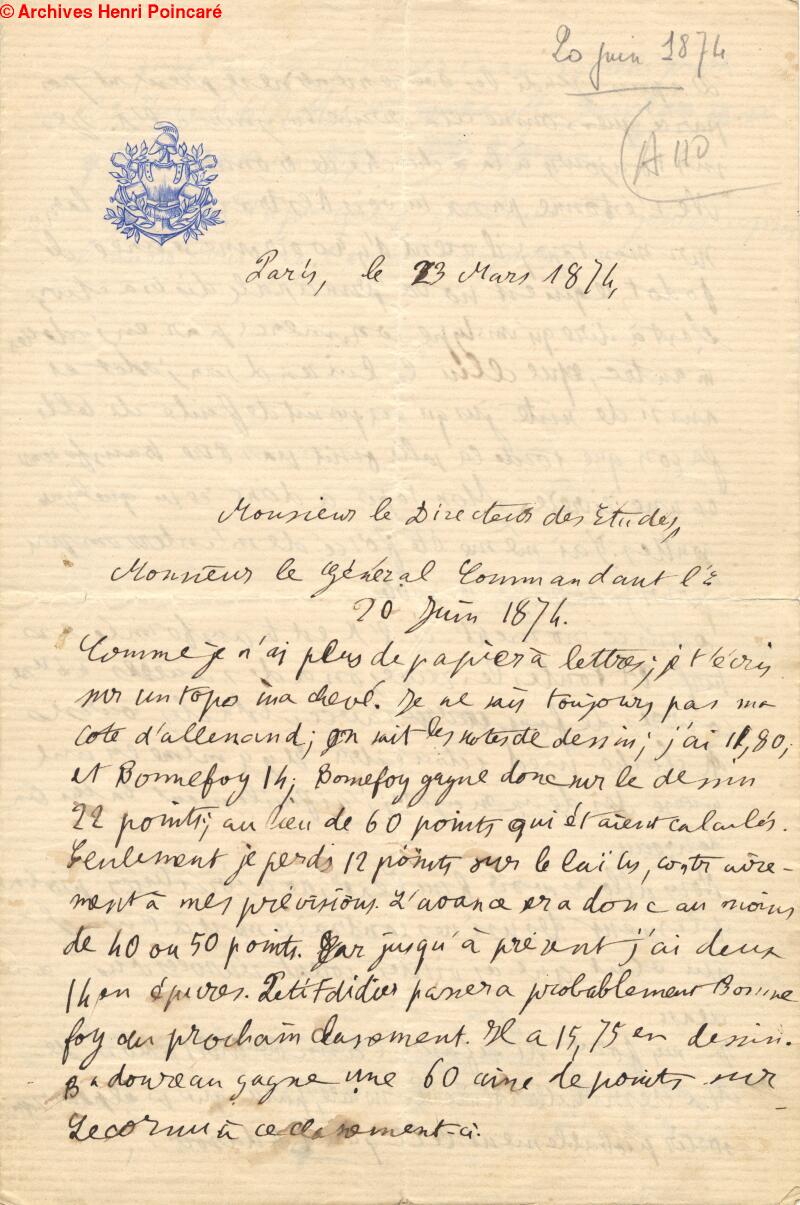 © Archives Henri Poincaré
20 juin 1874
Paris, le 23 Mars 1874,
Monsieur le Directeur des Etudes,
Monsieur le Général Commandant l'É
20 Juin 1874.
Comme je n'ai plus de papier à lettres; je t'écris
sur un topo inachevé. Je ne sais toujours pas ma
cote d'allemand; on sait les notes de dessin; j'ai 11,80;
et Bonnefoy 14; Bonnefoy gagne donc sur le dessin
22 points; au lieu de 60 points qui étaient calculés.
Seulement je perds 12 points sur le laïus, contraire-
ment à mes prévisions. L'avance sera donc au moins
de 40 ou 50 points. Car jusqu'à présent j'ai deux
14 en épures. Petitdidier passera probablement Bonne
foy au prochain classement. Il a 15,75 en dessin.
Badoureau gagne une 60aine de points sur
Lecornu à ce classement-ci.